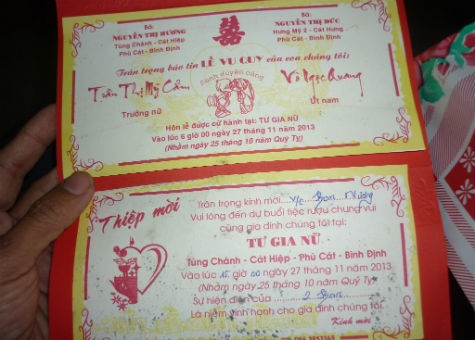 Bà:
NGUYỄN THỊ HƯƠNG
Tùng Chánh - Cát Hiệp
Phù Cát - Bình Định
囍
Bà:
NGUYỄN THỊ ĐỨC
Hưng Mỹ 2 - Cát Hưng
Phù Cát - Bình Định
Trân trọng báo tin LỄ VU QUY của con chúng tôi:
Trần Thị Mỹ Cẩm
Trưởng nữ
Võ Ngọc Quang
Út nam
Hôn lễ được cử hành tại: TƯ GIA NỮ
Vào lúc 6 giờ 00 ngày 27 tháng 11 năm 2013
(Nhằm ngày 25 tháng 10 năm Quý Tỵ)
Thiệp mời
Trân trọng kính mời
Vui lòng đến dự buổi tiệc rượu chung vui
cùng gia đình chúng tôi tại:
TƯ GIA NỮ
Tùng Chánh - Cát Hiệp - Phù Cát - Bình Định
Vào lúc giờ 00 ngày 27 tháng 11 năm 2013
(Nhằm ngày 25 tháng 10 năm Quý Tỵ)
Sự hiện diện của
Là niềm vinh hạnh cho gia đình chúng tôi.
Kính mời